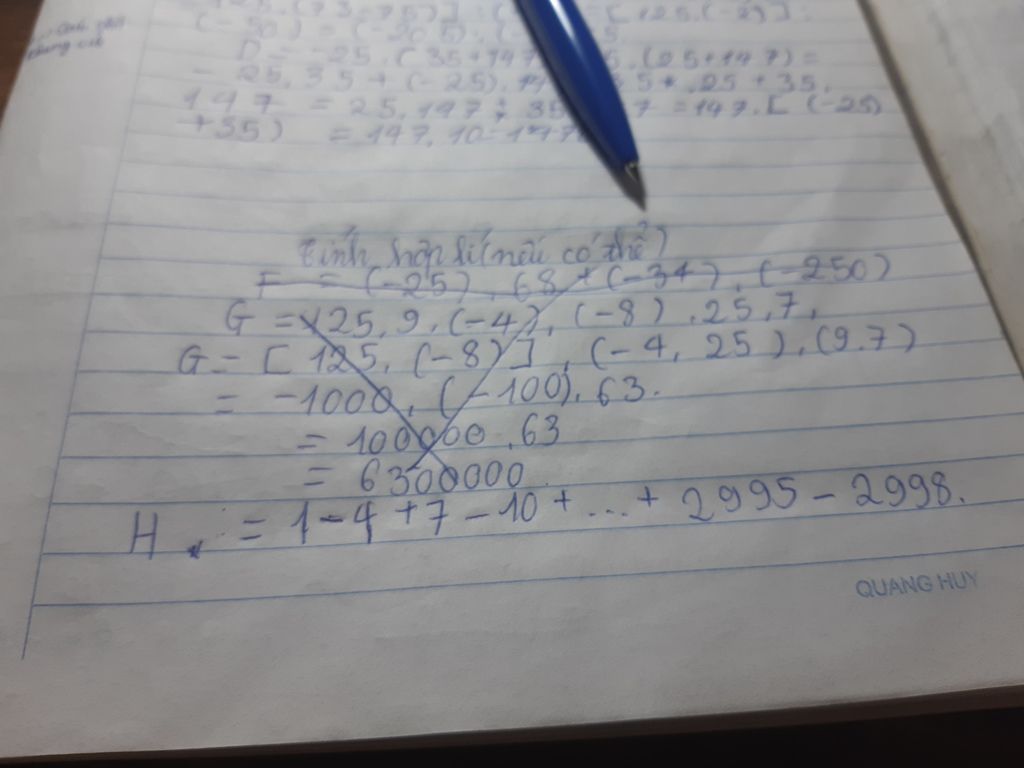 D = -25. (35+147
.(25+147) =
- 25. 35 + (-25).
25 + 35.
147 = 25.147 + 35
7 = 147. [ (-25)
+35) = 147.10=147
Tính hợp lí (nếu có thể)
F = (-25) . 68 + (-34) . (-250)
G = 125. 9. (-4). (-8) . 25. 7.
G = [ 125. (-8)] . (-4. 25). (9.7)
= -1000. (-100). 63.
= 100000 .63
= 6300000
H = 1 - 4 + 7 - 10 + ... + 2995 - 2998.
QUANG HUY